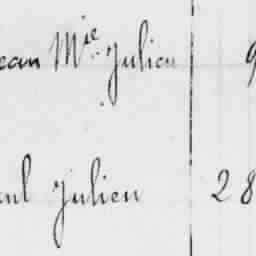 ean Mie Julien 9
aul Julien 28